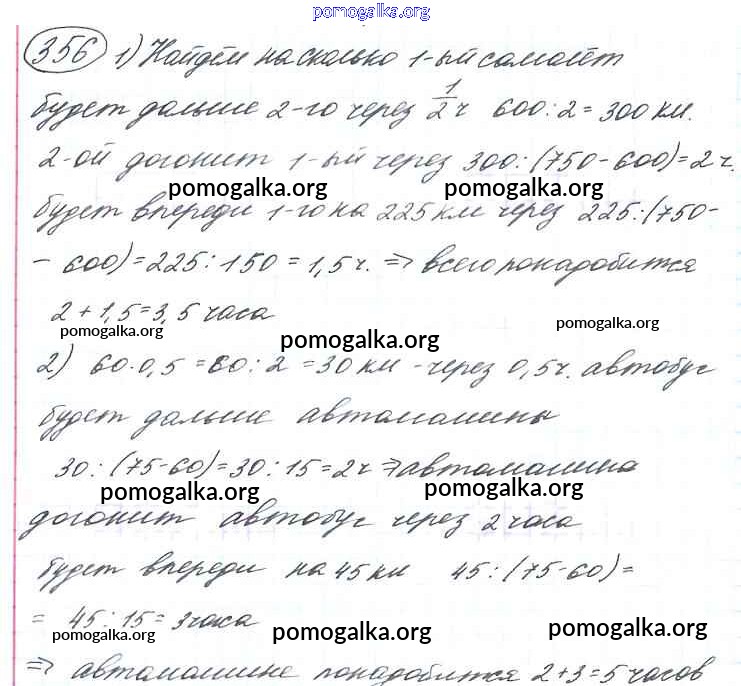 pomogalka.org
356 1) Найдём на сколько 1-ый самолёт
будет дальше 2-го через 1/2 ч 600:2=300 км.
2-ой догонит 1-ый через 300:(750-600)=2 ч.
pomogalka.org pomogalka.org
будет впереди 1-го на 225 км через 225:(750-
- 600)=225:150=1,5 ч. ⇒ всего понадобится
2+1,5=3,5 часа
pomogalka.org pomogalka.org pomogalka.org
2) 60·0,5=60:2=30 км - через 0,5 ч. автобус
будет дальше автомашины
30:(75-60)=30:15=2 ч ⇒ автомашина
pomogalka.org pomogalka.org
догонит автобус через 2 часа
будет впереди на 45 км 45:(75-60)=
= 45:15=3 часа
pomogalka.org pomogalka.org pomogalka.org
⇒ автомашине понадобится 2+3=5 часов